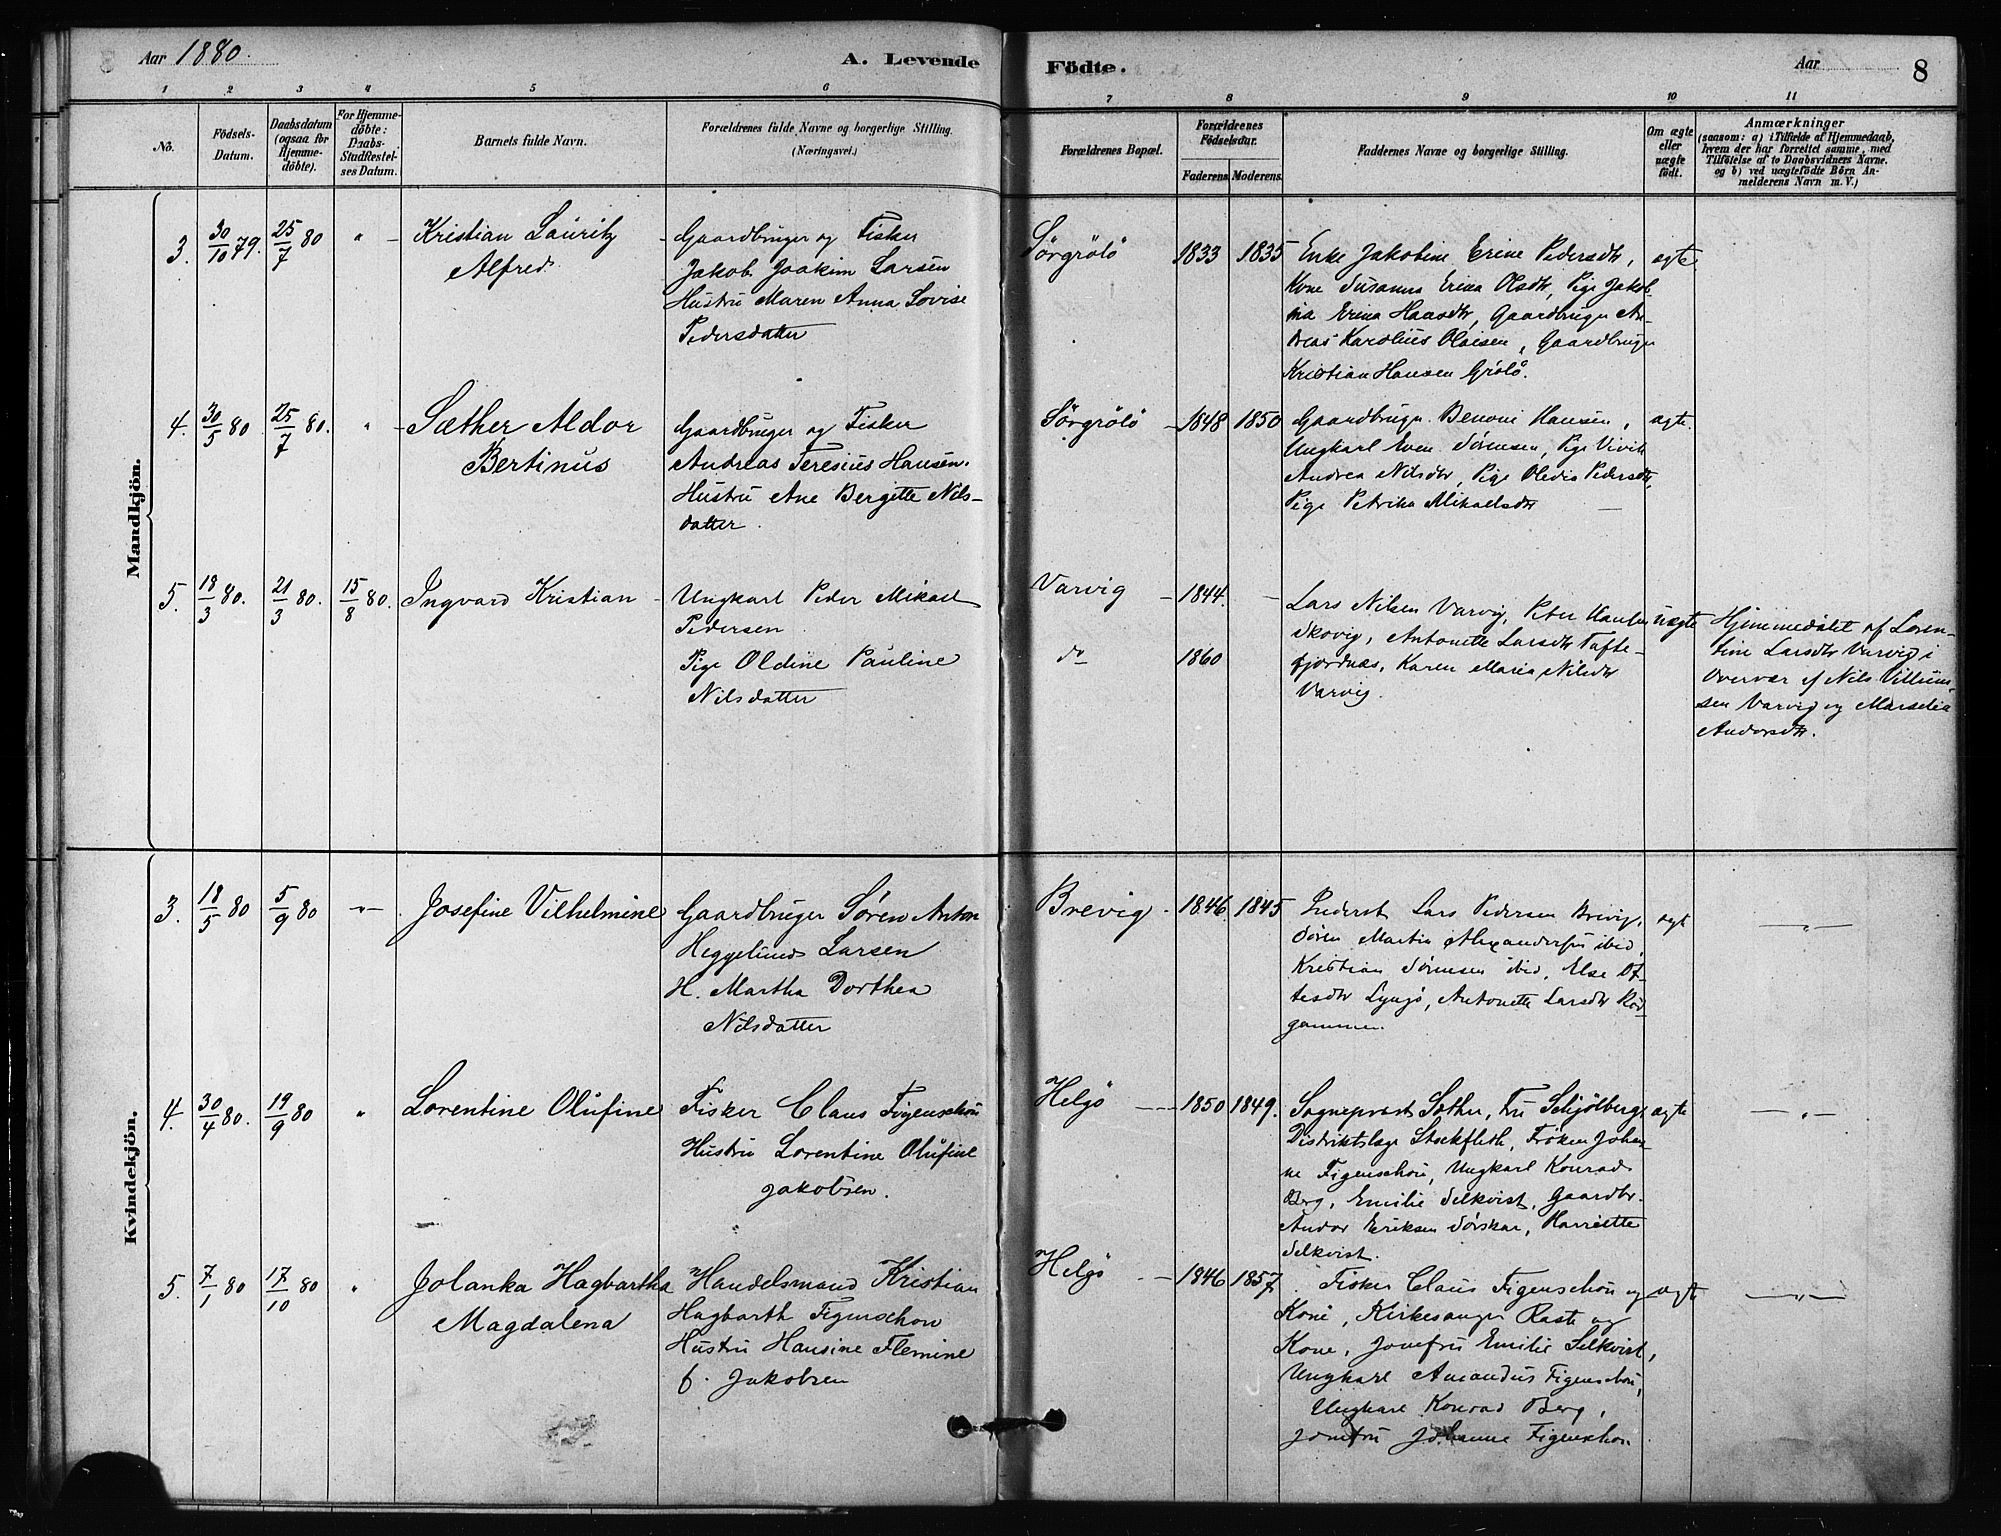 Aar 1880.
A. Levende Födte.
Aar
8
1 2 3 4 5 6 7 8 9 10 11
No.
Födsels-
Datum.
Daabsdatum
(ogsaa for
Hjemme-
döbte).
For Hjemme-
döbte:
Daabs-
Stadfestel-
ses Datum.
Barnets fulde Navn.
Forældrenes fulde Navne og borgerlige Stilling.
(Næringsvei.)
Forældrenes Bopæl.
Forældrenes
Födselsaar.
Faderens. Moderens.
Faddernes Navne og borgerlige Stilling.
Om ægte
eller
uægte
födt.
Anmærkninger
(saasom: a) i Tilfælde af Hjemmedaab,
hvem der har forrettet samme, med
Tilföielse af to Daabsvidners Navne.
og b) ved uægtefödte Börn An-
melderens Navn m. V.)
Mandkjön.
3. 30/10 79. 25/7 80 "
Kristian Lauritz
Alfred.
Gaardbruger og Fisker
Jakob Joakim Larsen
Hustru Maren Anna Lovise
Pedersdatter
Sörgrölö
1833 1835
Enke Jakobine Erine Pedersdtr,
Kone Susanna Erina Olsdtr, Pige Jakob-
ina Erina Hansdtr, Gaardbruger An-
dreas Karolius Olaisen, Gaardbruger
Kristian Hansen Grölö.
ægte
4. 30/5 80 25/7 80. "
Sæther Aldor
Bertinus
Gaardbruger og Fisker
Andreas Teresius Hansen.
Hustru Ane Bergitte Nils-
datter.
Sörgrölö
1848 1850
Gaardbruger Benoni Hansen,
Ungkarl Even Sörensen, Pige
Andrea Nilsdtr, Pige Oledia Pedersdtr,
Pige Petrika Mikaelsdtr
ægte.
5. 18/3 80. 21/3 80. 15/8 80.
Ingvard Kristian
Ungkarl Peder Mikael
Pedersen.
Pige Oldine Pauline
Nilsdatter
Varvig
do
1844.
1860
Lars Nilsen Varvig, Peter Hansen
Skovig, Antonette Larsdtr Tafte-
fjordnæs, Karen Maria Nilsdtr
Varvig.
uægte
Hjemmedöbt af Loren-
tine Larsdtr Varvig i
Overvær af Nils Villum-
sen Varvig og Marselie
Andersdtr.
Kvindekjön.
3. 18/5 80 5/9 80 "
Josefine Vilhelmine
Gaardbruger Sören Anton
Heggelund Larsen
H. Martha Dorthea
Nilsdatter
Brevig
1846. 1845
Lars Pedersen Brevig,
Sören Martin Alexandersen ibid,
Kristian Sörensen ibid, Else Ot-
tesdtr Lyngö, Antonette Larsdtr Röd-
gammen.
ægte
"
4. 30/4 80. 19/9 80 "
Lorentine Olufine
Fisker Claus Figenschou
Hustru Lorentine Olufine
Jakobsen.
Helgö
1850 1849.
Sogneprest Sæther, Fru Schjölberg,
Distriktslæge Stockfleth, Fröken Johan-
ne Figenschou, Ungkarl Konrad
Berg, Emilie Selkvist, Gaardbr.
Andor Eriksen Sörskar, Harriette
Selkvist.
ægte
"
5. 7/1 80 17/10 80 "
Jolanka Hagbartha
Magdalena
Handelsmand Kristian
Hagbarth Figenschou
Hustru Hansine Flemine
f. Jakobsen
Helgö
1846 1857.
Fisker Claus Figenschou og
Kone, Kirkesanger Raste og
Kone, Jomfru Emilie Selkvist,
Ungkarl Amandus Figenschou,
Ungkarl Konrad Berg,
Jomfru Johanne Figenschou
ægte
"